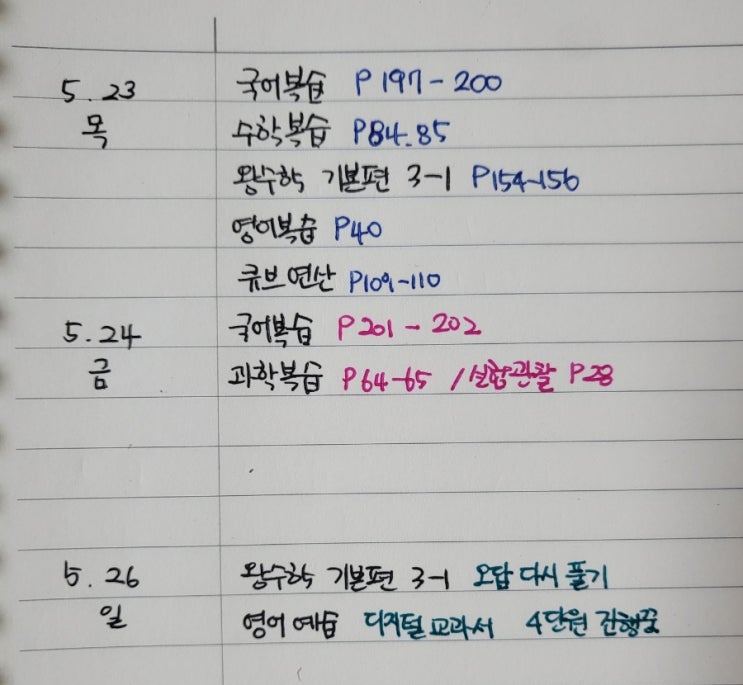 5. 23 국어복습 P 197 - 200
목 수학복습 P84.85
왕수학 기본편 3-1 P154-156
영어복습 P40
큐브연산 P109-110
5. 24 국어복습 P 201 - 202
금 과학복습 P 64-65 / 실험관찰 P28
5. 26 왕수학 기본편 3-1 오답 다시 풀기
일 영어 예습 디지털교과서 4단원